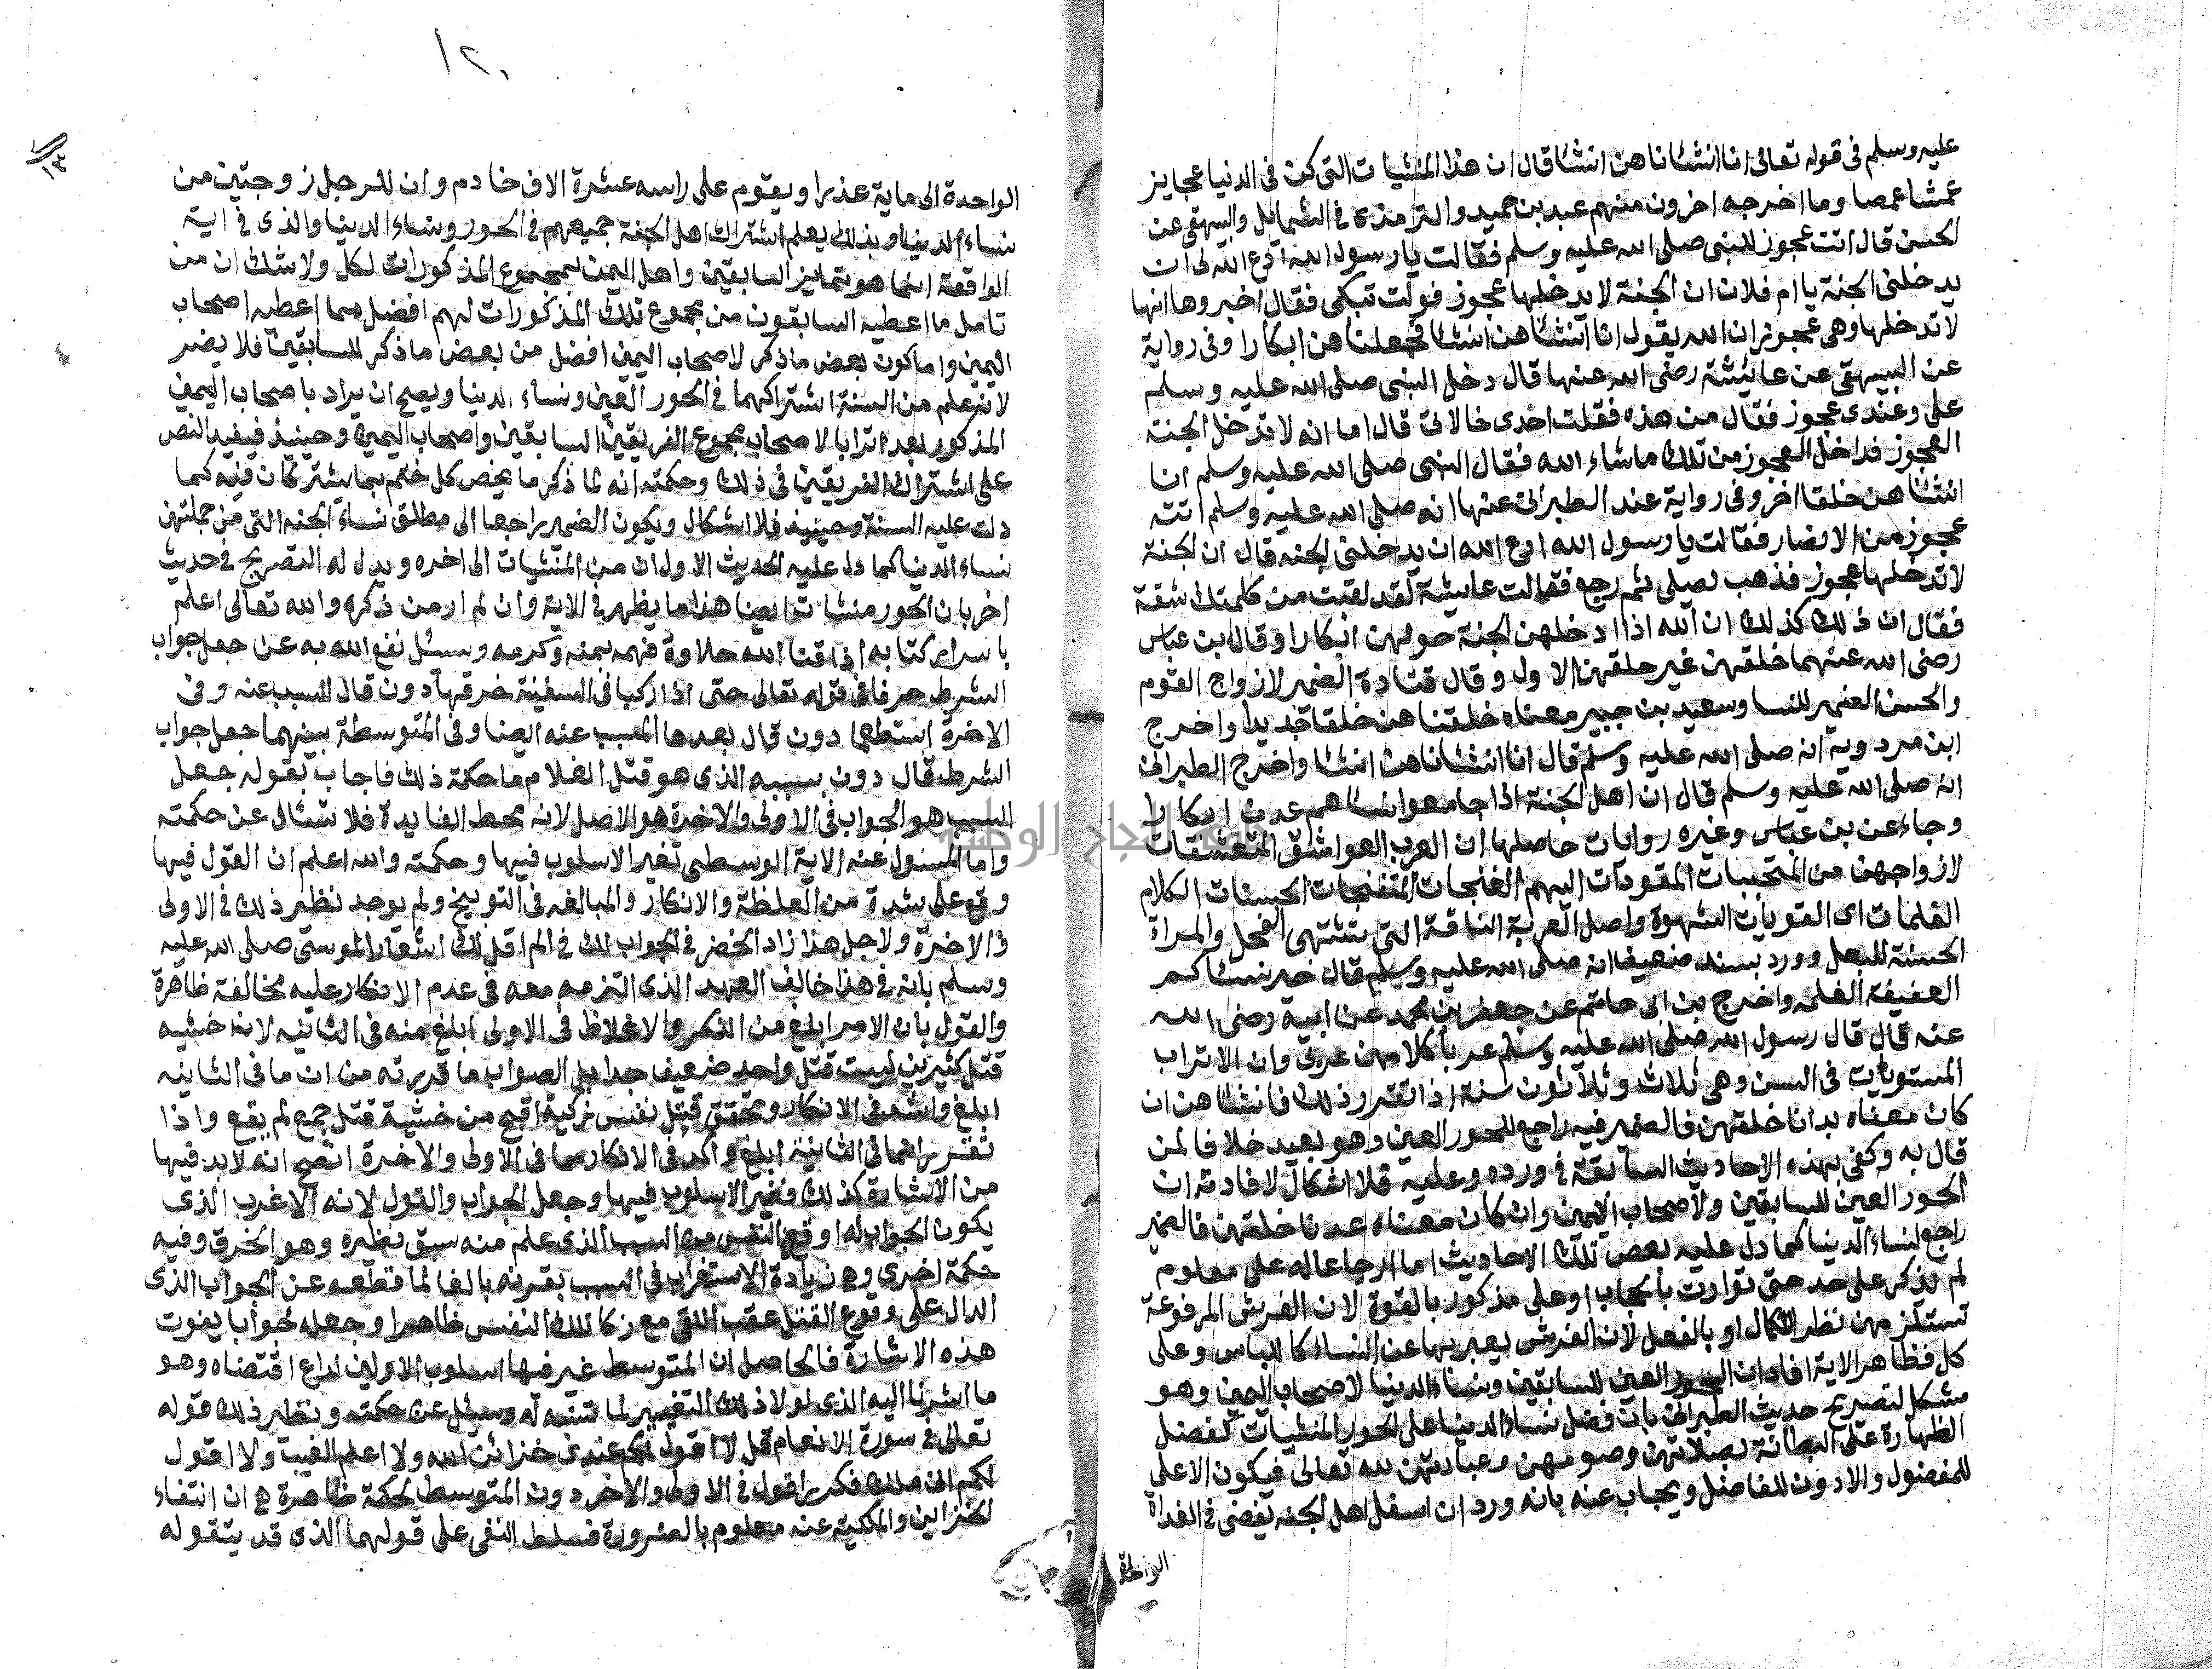 عليه وسلم في قوله تعالى انا انشاناهن انشا قال ان هذا المنشيات التي كن في الدنيا عجايز
عمشا عمصا وما اخرجه اخرون منهم عبد بن حميد والترمذي في الشمايل والبيهقي عن
الحسن قال اتت عجوز للنبي صلى الله عليه وسلم فقالت يا رسول الله ادع الله لي ان
يدخلني الجنة يا ام فلان ان الجنة لا يدخلها عجوز فولت تبكي فقال اخبروها انها
لا تدخلها وهي عجوز ان الله يقول انا انشاهن انشا فجعلناهن ابكارا وفي رواية
عن البيهقي عن عائشة رضى الله عنها قال دخل النبي صلى الله عليه وسلم
على وعندي عجوز فقال من هذه فقلت احدى خالاتي قال اما انه لا تدخل الجنة
العجوز فداخل العجوز من تلك ماشاء الله فقال النبي صلى الله عليه وسلم انا
انشاهن خلقا اخر وفى رواية عند الطبراني عنها انه صلى الله عليه وسلم اتته
عجوز من الانصار فقالت يا رسول الله ادع الله ان يدخلني الجنه قال ان الجنة
لا تدخلها عجوز فذهب يصلي ثم رجع فقالت عايشة لقد لقيت من كلمتك شقة
فقال ان ذلك كذلك ان الله اذا ادخلهن الجنة حولهن ابكارا وقال بن عباس
رضى الله عنهما خلقهن غير خلقهن الاول وقال قتادة الضمير لازواج القوم
والحسن الضمير للنسا وسعيد بن جبير معناه خلقناهن خلقا جديدا واخرج
ابن مردوية انه صلى الله عليه وسلم قال انا انشاناهن انشا واخرج الطبراني
انه صلى الله عليه وسلم قال ان اهل الجنة اذا جامعوا نساهم عدن ابكارا
وجاء عن بن عباس وغيره روايات حاصلها ان العرب العواشق المتعشقات
لازواجهن من المتحببات المقودات اليهم الغنجات المتغنجات الحسنات الكلام
الغلمات اى القويات الشهوة واصل العربة الناقة التي تشتهى الفحل والمراة
الحسنة للبعل وورد بسند ضعيف انه صلى الله عليه وسلم قال خير نسائكم
العفيفة الغلمه واخرج بن ابي حاتم عن جعفر بن محمد عن ابيه رضى الله
عنه قال قال رسول الله صلى الله عليه وسلم عربا كلامهن عربى وان الاتراب
المستويات في السن وهى ثلاث وثلاثون سنة اذا تقرر ذلك فانشاهن ان
كان معناه بدانا خلقهن فالضمير فيه راجع للحور العين وهو بعيد خلافا لمن
قال به وكفى بهذه الاحاديث السابقة في ورده وعليه فلا اشكال لافادته ان
الحور العين للسابقين ولاصحاب اليمين وان كان معناه عدنا خلقهن فالضمير
راجع لنساء الدنيا كما دل عليه بعض تلك الاحاديث اما ارجاعا له على معلوم
لم يذكر على حد حتى توارت بالحجاب او على مذكور بالقوة لان الفرش المرفوعة
تستلزمهن نظر للكمال او بالفعل لان الفرش يعبر بها عن النساء كاللباس وعلى
كل فظاهر الاية افاد ان الحور العين للسابقين ونساء الدنيا لاصحاب اليمين وهو
مشكل لتصريح حديث الطبراني بان فضل نساء الدنيا على الحور المنشيات كفضل
الظهارة على البطانة بصلاتهن وصومهن وعبادتهن لله تعالى فيكون الاعلى
للمفضول والادون للفاضل ويجاب عنه بانه ورد ان اسفل اهل الجنه يفضى في الغداة
الواحدة
١٢٠
١٣
الواحدة الى ماية عذرا ويقوم على راسه عشرة الاف خادم وان للرجل زوجتين من
نساء الدنيا وبذلك يعلم اشتراك اهل الجنة جميعهم في الحور ونساء الدنيا والذى في اية
الواقعة انما هو تمايز السابقين واهل اليمين لمجموع المذكورات لكل ولاشك ان من
تامل ما اعطيه السابقون من مجموع تلك المذكورات لهم افضل مما اعطيه اصحاب
اليمين واما كون بعض ماذكر لاصحاب اليمين افضل من بعض ماذكر للسابقين فلا يضر
لانه علم من السنة اشتراكهما في الحور العين ونساء الدنيا ويصح ان يراد باصحاب اليمين
المذكور بعد اترابا لاصحاب مجموع الفريقين السابقين واصحاب اليمين وحينيذ فيفيد النص
على اشتراك الفريقين في ذلك وحكمته انه لما ذكر ما يخص كل ختم بما يشتركان فيه كما
دلت عليه السنة وحينيذ فلا اشكال ويكون الضمير راجعا الى مطلق نساء الجنه التي من جملتهن
نساء الدنيا كما دل عليه الحديث الاول ان من المنشيات الى اخره ويدل له التصريح في حديث
اخر بان الحور منشات ايضا هذا ما يظهر في الاية وان لم ار من ذكره والله تعالى اعلم
باسرار كتابه اذاقنا الله حلاوة فهمه بمنه وكرمه وسئل نفع الله به عن جعل جواب
الشرط حرفا في قوله تعالى حتى اذا ركبا في السفينة خرقها دون قال المسبب عنه وفى
الاخرة استطعما دون قال بعدها المسبب عنه ايضا وفى المتوسطة بينهما جعل جواب
الشرط قال دون سببه الذى هو قتل الغلام ما حكمة ذلك فاجاب بقوله جعل
السبب هو الجواب في الاولى والاخرة هو الاصل لانه محط الفايدة فلا تسال عن حكمته
واما المسول عنه الاية الوسطى تغير الاسلوب فيها وحكمته والله اعلم ان القول فيها
وقع على شدة من الغلظة والانكار والمبالغه في التوبيخ ولم يوجد نظير ذلك في الاولى
والاخرة ولاجل هذا زاد الخضر في الجواب لك في الم اقل لك اشعارا لموسى صلى الله عليه
وسلم بانه في هذا خالف العهد الذى التزمه معه في عدم الانكار عليه مخالفة ظاهرة
والقول بان الامر ابلغ من النكر والاغلاظ في الاولى ابلغ منه في الثانيه لانه خشيه
قتل كثيرين ليست قتل واحد ضعيف جدا بل الصواب ما قررته من ان ما في الثانيه
ابلغ واشد في الانكار وتحقق قتل نفس زكية اقبح من خشية قتل جمع لم يقع واذا
تقرر انما في الثانية ابلغ واكد في الانكار مما في الاولى والاخرة اتضح انه لابد فيها
من الاشارة كذلك فغير الاسلوب فيها وجعل الجواب والقول لانه الاغرب الذى
يكون الجواب له اوقع النفس من السبب الذى علم منه سبق نظيره وهو الخرق وفيه
حكمة اخرى وهى زيادة الاستغراب في السبب بقرنه بالفا لما قطعه عن الجواب الذى
الدال على وقوع القتل عقب اللقى مع زكا تلك النفس ظاهرا وجعله جوابا يفوت
هذه الاشارة فالحاصل ان المتوسط غير فيها اسلوب الاولين لداع اقتضاه وهو
ما اشرنا اليه الذى لولا ذلك التغيير لما تنبه له وسئل عن حكمته ونظير ذلك قوله
تعالى في سورة الانعام قل لا اقول لكم عندى خزائن الله ولا اعلم الغيب ولا اقول
لكم انى ملك فكرر اقول في الاولى والاخر دون المتوسط لحكمة ظاهرة هى ان انتفاء
الخزاين والملكية عنه معلوم بالضرورة فسلط النفى على قولهما الذى قد يتقوله